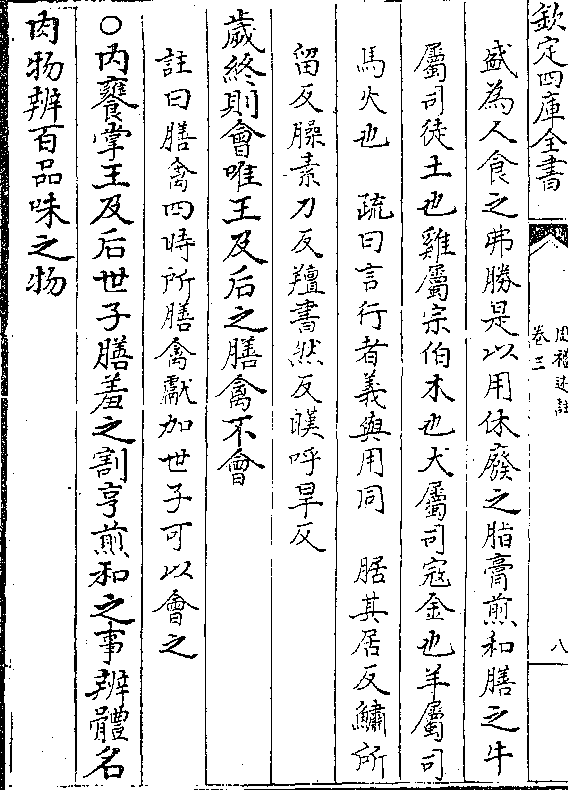 欽定四庫全書
周禮述註
卷三
八
盛為人食之弗勝是以用休廢之脂膏煎和膳之牛
屬司徒土也雞屬宗伯木也犬屬司寇金也羊屬司
馬火也　疏曰言行者義與用同　腒其居反鱐所
留反臊素刀反羶書然反暵呼旱反
歲終則會唯王及后之膳禽不會
註曰膳禽四時所膳禽獻加世子可以會之
○内饔掌王及后世子膳羞之割亨煎和之事辨體名
肉物辨百品味之物